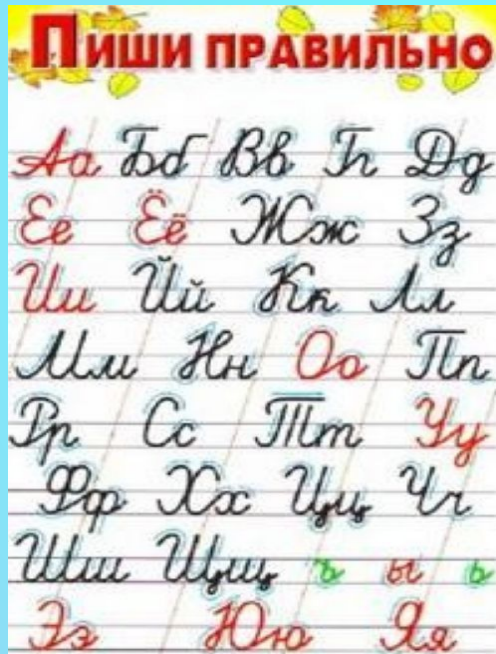 ПИШИ ПРАВИЛЬНО
Аа Бб Вв Гг Дд
Ее Ёё Жж Зз
Ии Йй Кк Лл
Мм Нн Оо Пп
Рр Сс Тт Уу
Фф Хх Цц Чч
Шш Щщ ъ ы ь
Ээ Юю Яя